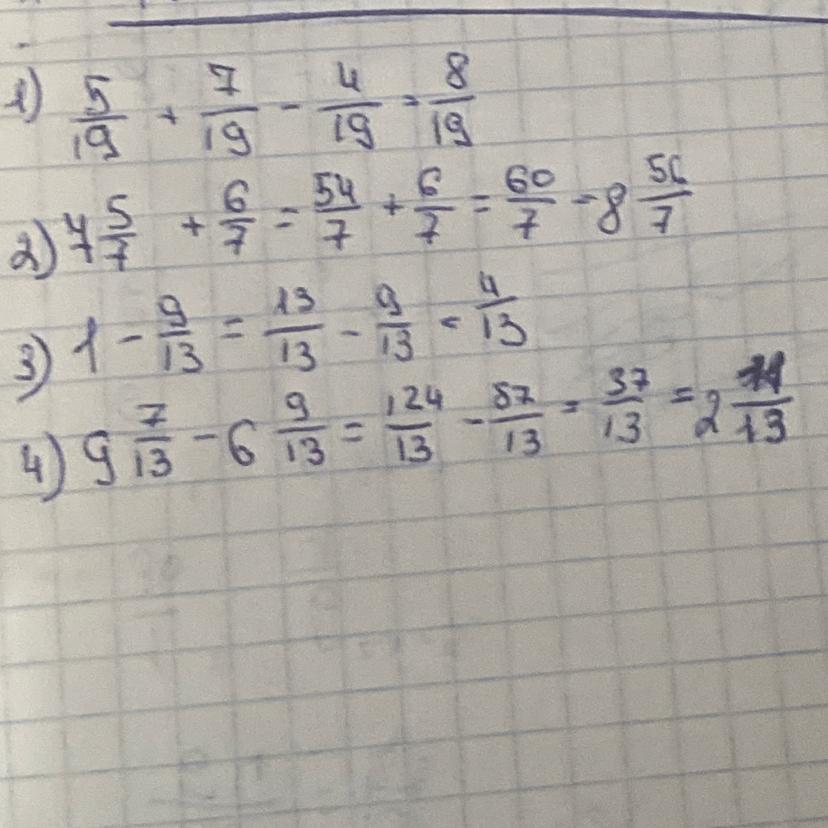 1) 5/19 + 7/19 - 4/19 = 8/19
2) 7 5/7 + 6/7 = 54/7 + 6/7 = 60/7 = 8 56/7
3) 1 - 9/13 = 13/13 - 9/13 = 4/13
4) 9 7/13 - 6 9/13 = 124/13 - 87/13 = 37/13 = 2 11/13